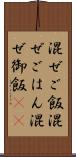 混ぜご飯混
ぜごはん混
ぜ御飯